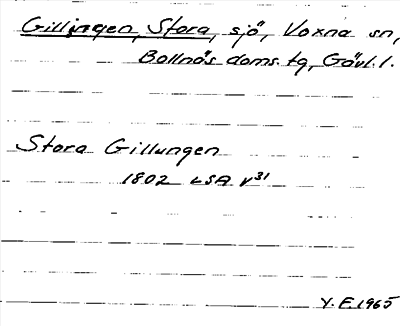 Gillingen, Stora, sjö, Voxna sn,
Bollnäs doms. tg, Gävl. l.
Stora Gillungen
1802 LSA V31
Y. E. 1965